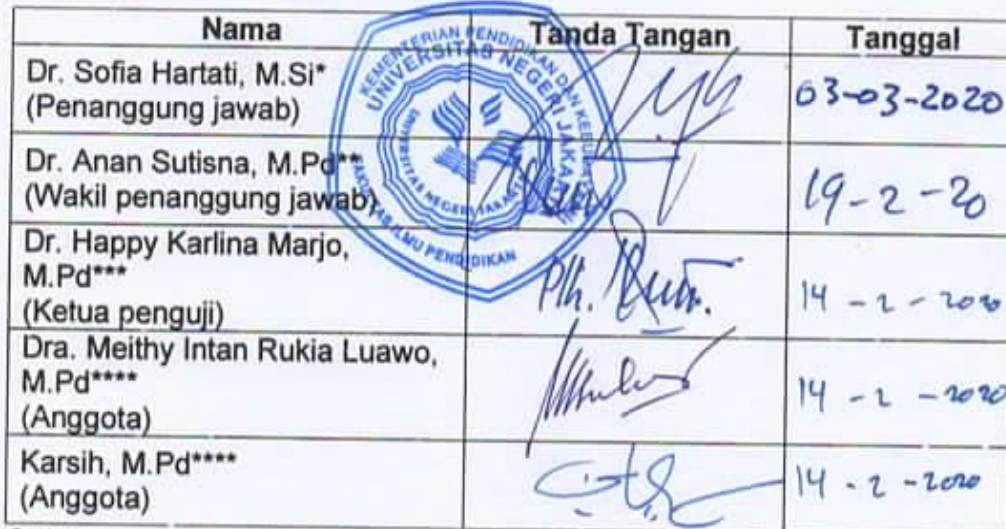 Nama Tanda Tangan Tanggal
Dr. Sofia Hartati, M.Si*
(Penanggung jawab)
03-03-2020
Dr. Anan Sutisna, M.Pd**
(Wakil penanggung jawab)
19-2-20
Dr. Happy Karlina Marjo,
M.Pd***
(Ketua penguji)
Plh.
14-2-2020
Dra. Meithy Intan Rukia Luawo,
M.Pd****
(Anggota)
14-2-2020
Karsih, M.Pd****
(Anggota)
14-2-2020
KEMENTERIAN PENDIDIKAN DAN
UNIVERSITAS NEGERI JAKARTA
FAKULTAS ILMU PENDIDIKAN
UNIVERSITAS NEGERI JAKARTA